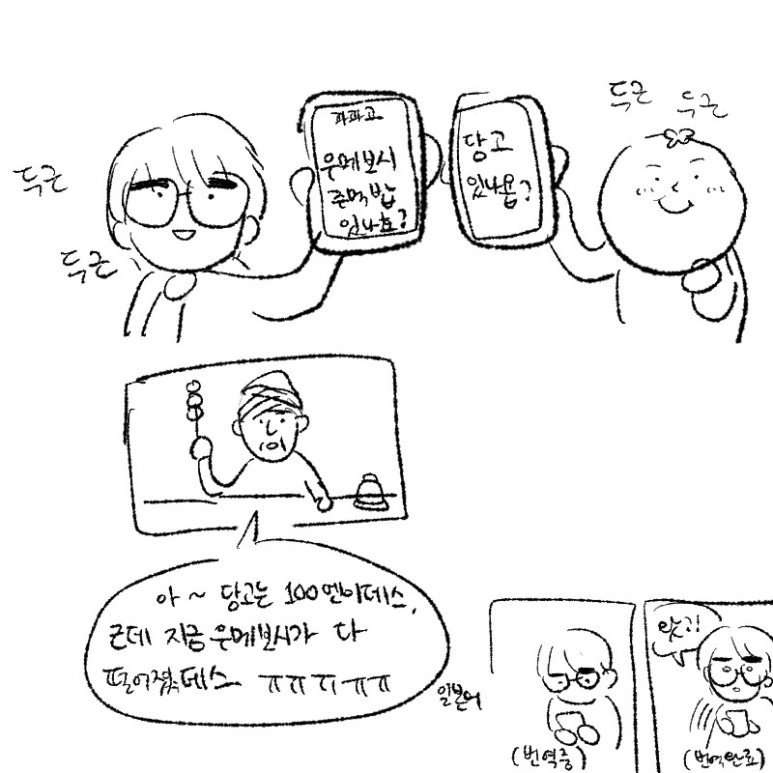 두근
두근
두근
두근
파파고
우메보시
주먹밥
있나효?
당고
있나욥?
아~ 당고는 100엔이데스,
근데 지금 우메보시가 다
떨어졌데스 ㅠㅠㅠㅠㅠ
일본어
(번역중)
앗긔!
(번역완료)